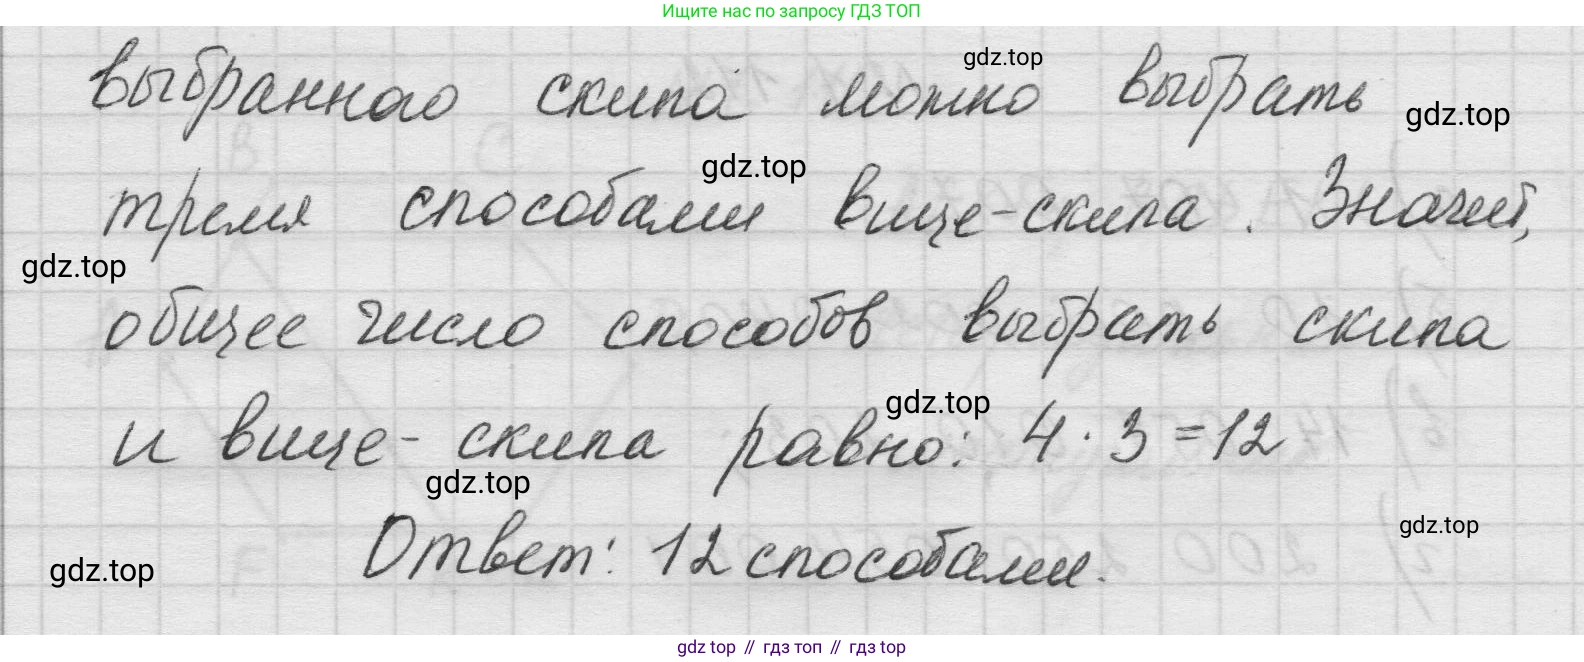 Ищите нас по запросу ГДЗ ТОП
выбранного скипа можно выбрать
gdz.top
gdz.top
gdz.top
тремя способами вице-скипа. Значит,
gdz.top
общее число способов выбрать скипа
gdz.top
и вице-скипа равно: 4 · 3 = 12
gdz.top
gdz.top
Ответ: 12 способами.
gdz.top
gdz top // гдз топ // гдз top